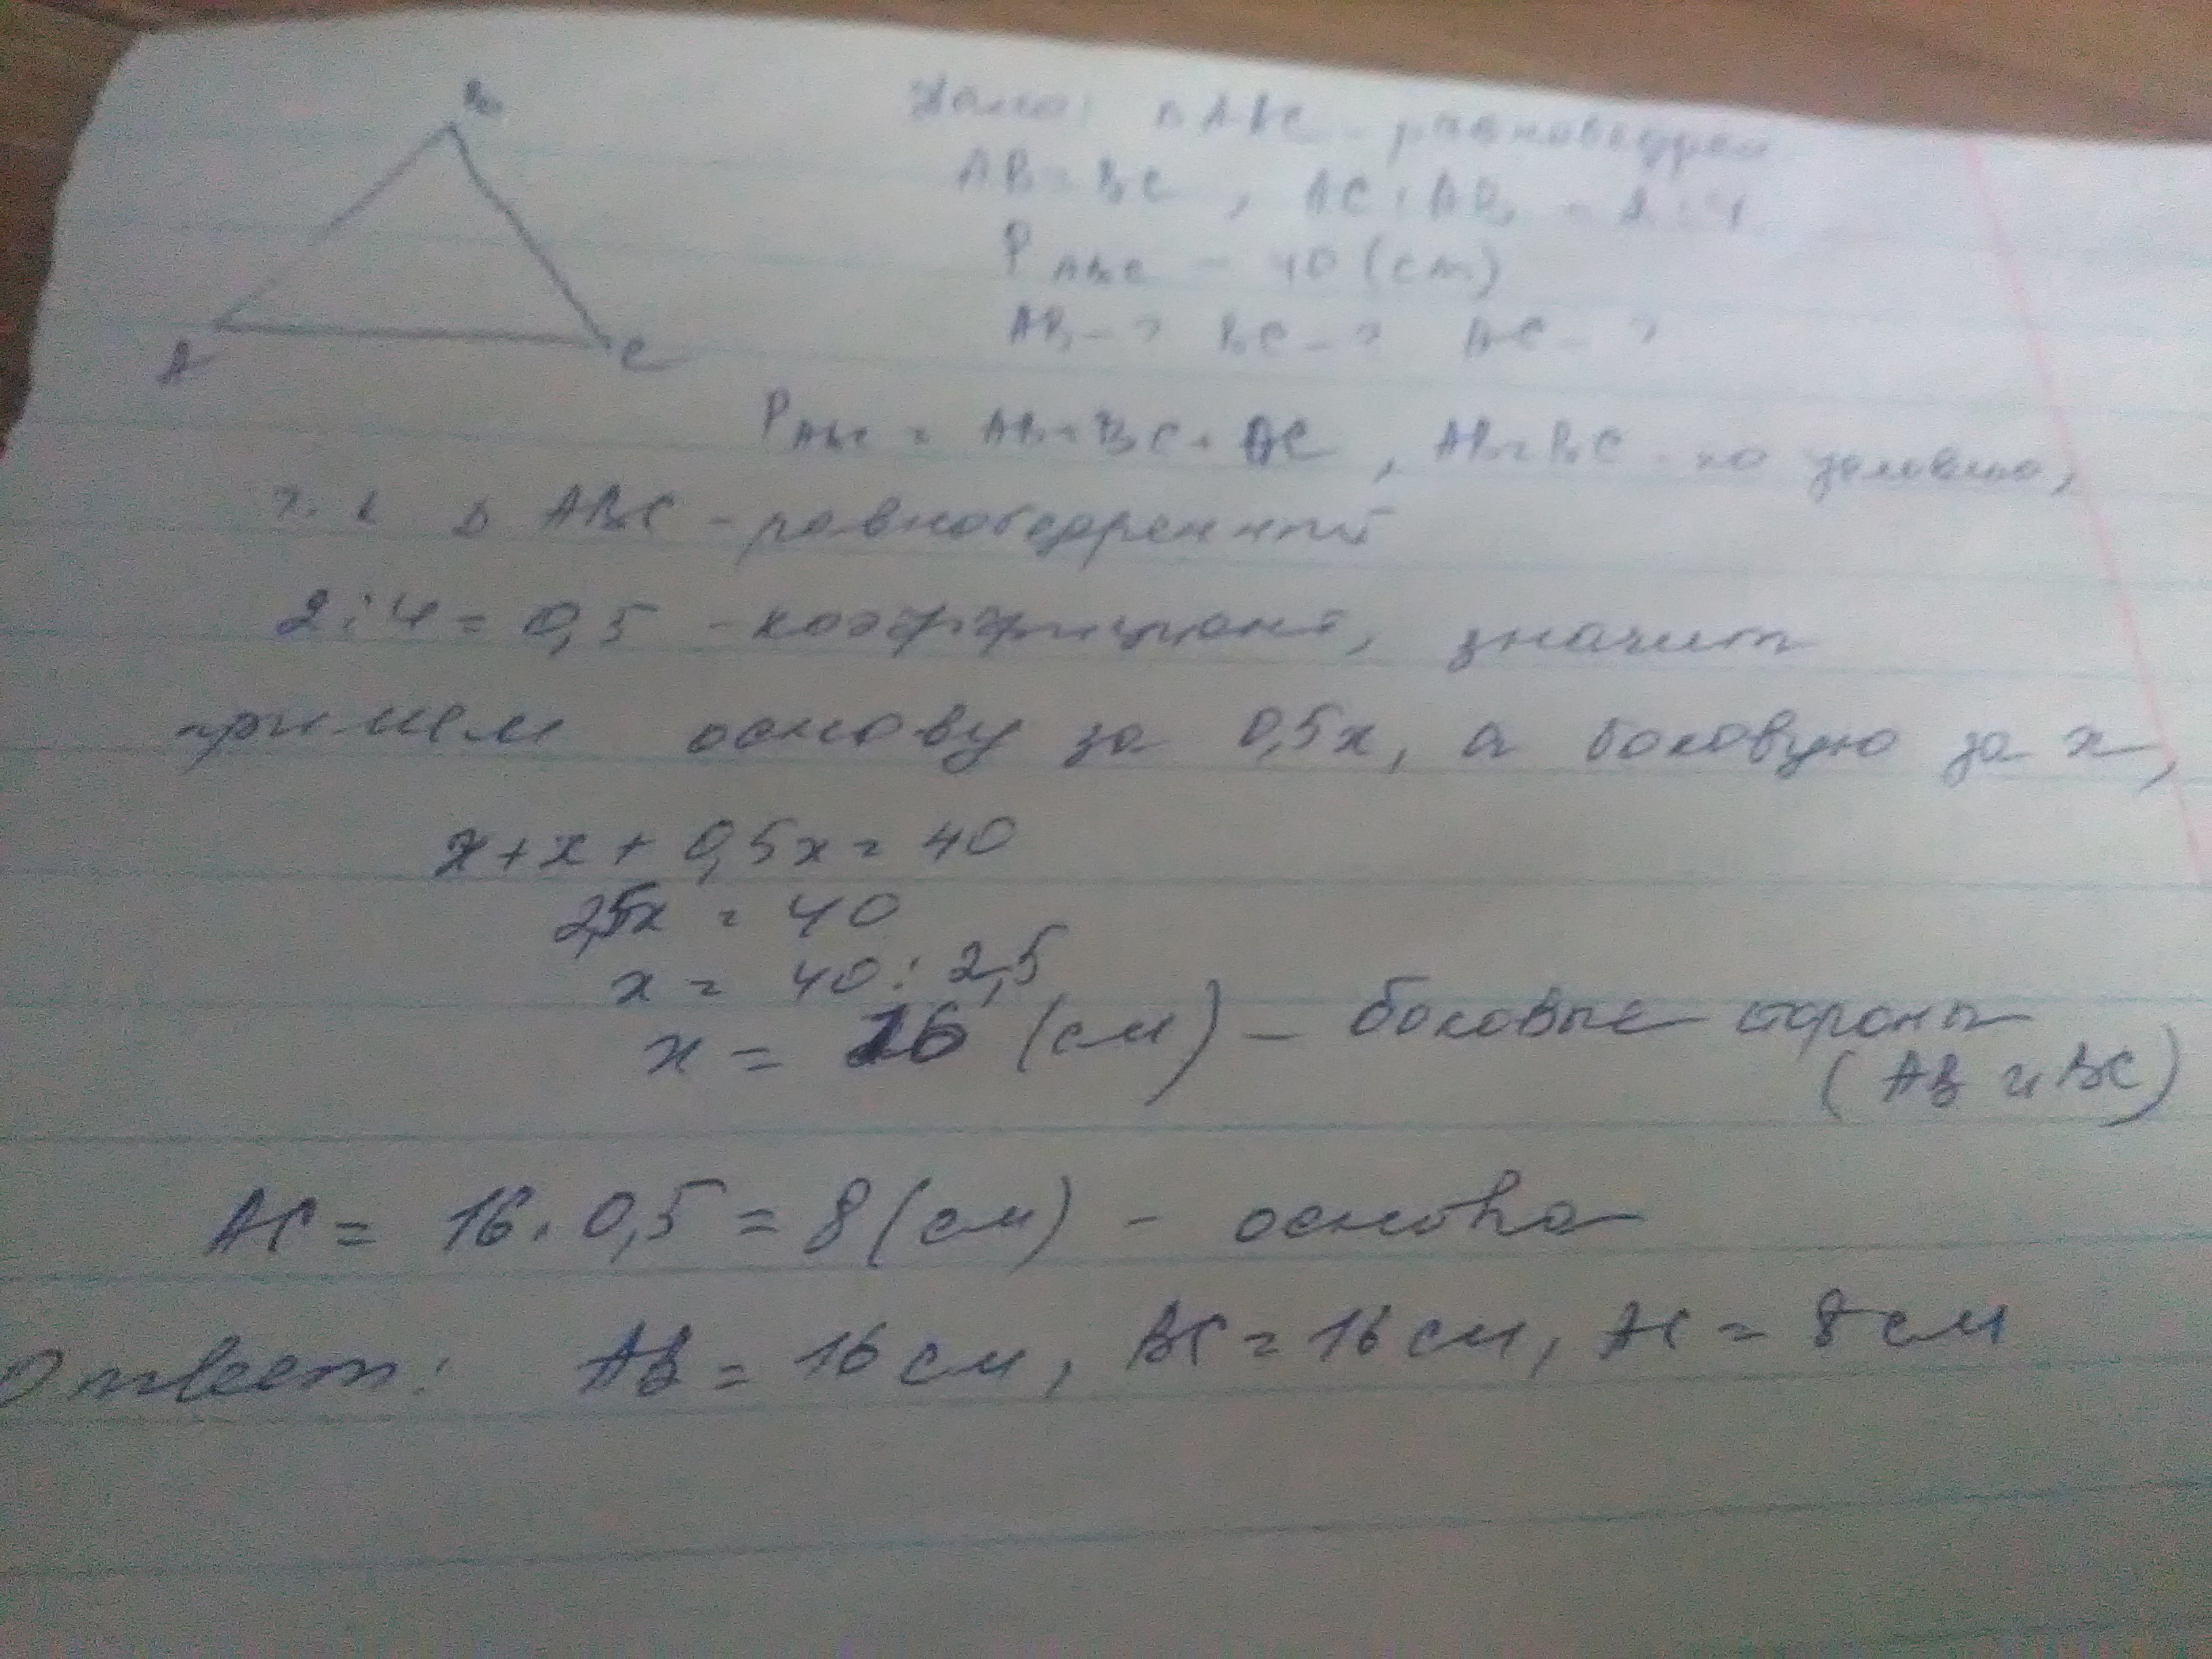 B
A
C
Дано: ∆ ABC - равнобедрен
AB = BC, AC : AB = 2 : 4
P ABC - 40 (см)
AB - ? BC - ? AC - ?
P ABC = AB + BC + AC, AB = BC - по условию,
т. к ∆ ABC - равнобедренный
2 : 4 = 0,5 - коэффициент, значит
примем основу за 0,5x, а боковую за x,
x + x + 0,5x = 40
2,5x = 40
x = 40 : 2,5
x = 16 (см) - боковые стороны
(AB и BC)
AC = 16 · 0,5 = 8 (см) - основа
Ответ: AB = 16 см, BC = 16 см, AC = 8 см